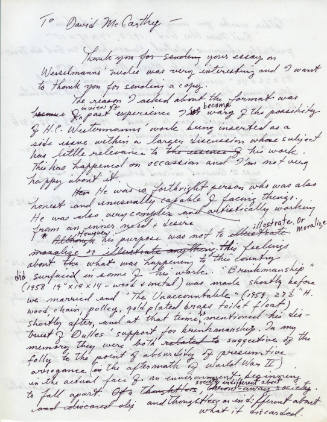 To David McCarthy —
Thank you for sending your essay on
Wesselmann's nudes was very interesting and I want
to thank you for sending a copy.
The reason I asked about the format was
because a past experience I wary of the possibility
of H.C. Westermann's work being inserted as a
side issue within a larger discussion whose subject
has little relevance to this work.
This has happened on occasion and I'm not very
happy about it.
He was a forthright person, who was also
honest and unusually capable of facing things.
He was also very complex and artistically working
from an inner need & desire
Although his purpose was not to illustrate, or moralize
his feelings
about what was happening to this country
did surfaced in some of his work. "Brinkmanship"
(1958 19" x 19 x 19 - wood & metal) was made shortly before
we married and "The Unaccountable" (1958, 23½" H.
wood, chain, pulley, gold plated brass foiled in lead)
shortly after, and at that time mentioned his dis-
trust of Dulles' support for brinkmanship. In my
memory they were both related to suggestive of the
folly to the point of absurdity of presumptive
arrogance (in the aftermath of World War II)
in the actual face of an environment beginning
to fall apart. Of a throw-away society
and thoughtless or indifferent about
what it discarded.